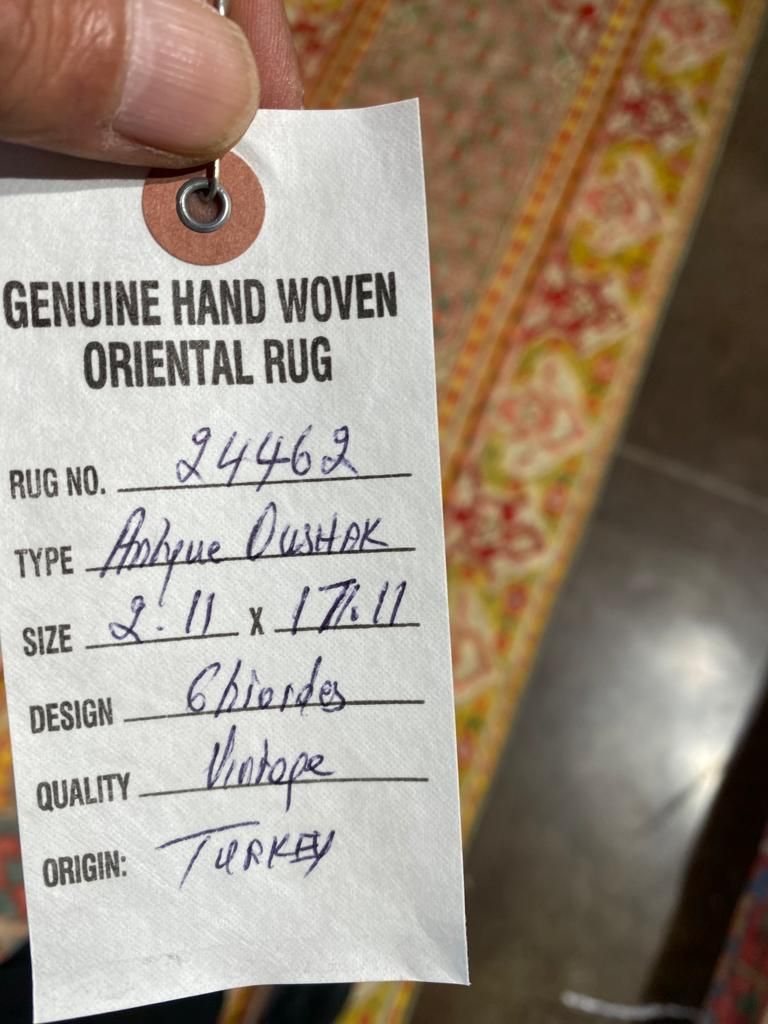 GENUINE HAND WOVEN
ORIENTAL RUG
RUG NO. 24462
TYPE Antique OUSHAK
SIZE 2.11 x 17.11
DESIGN Ghiordes
QUALITY Vintage
ORIGIN: TURKEY